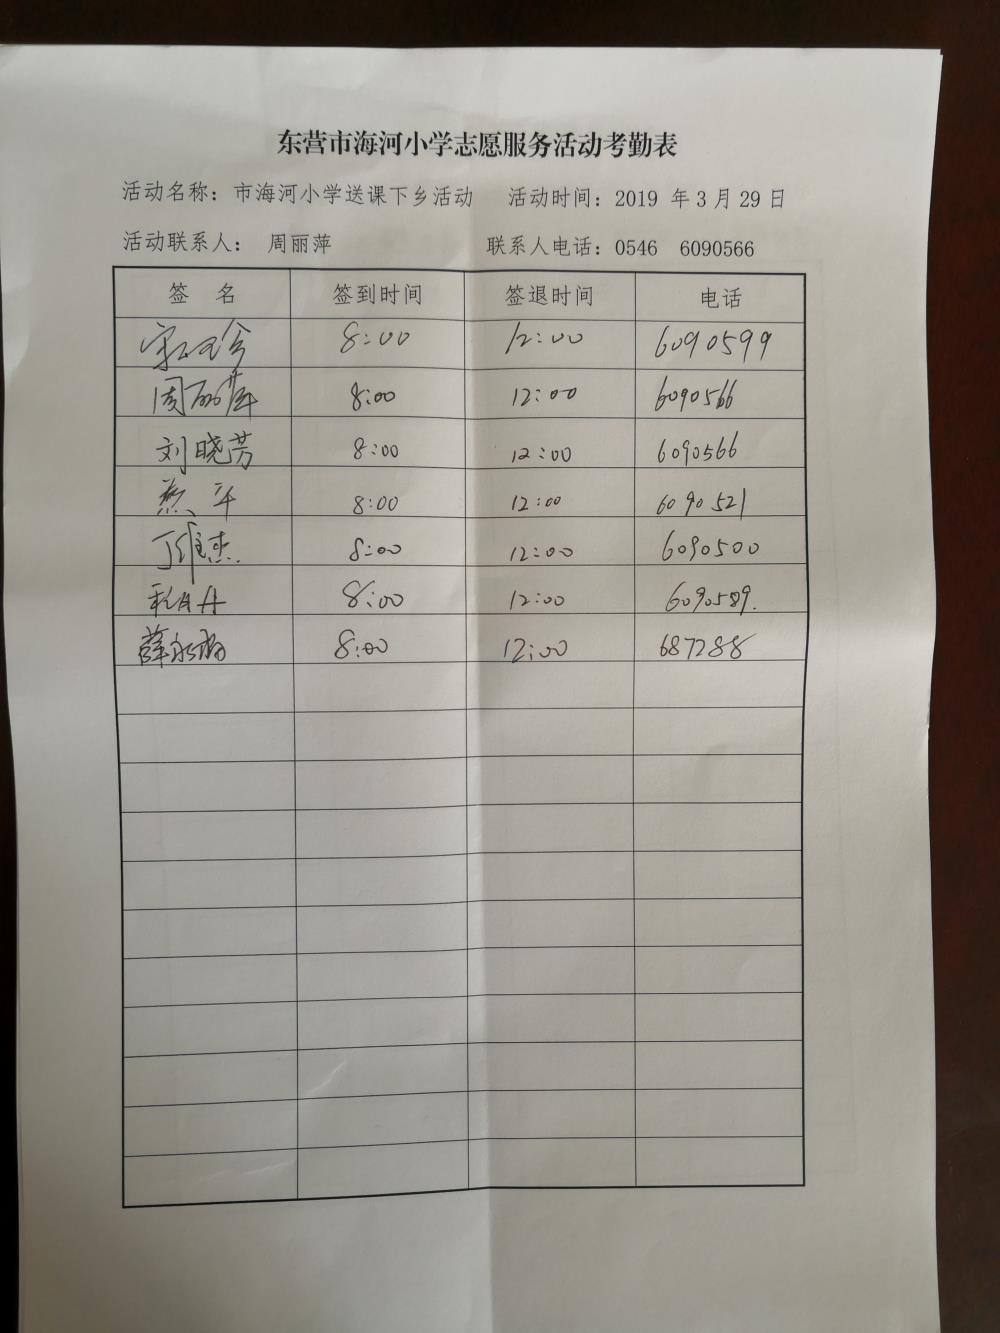 东营市海河小学志愿服务活动考勤表
活动名称：市海河小学送课下乡活动 活动时间：2019 年 3 月 29 日
活动联系人： 周丽萍 联系人电话：0546 6090566
签 名 签到时间 签退时间 电话
8:00 12:00 6090599
周丽萍 8:00 12:00 6090566
刘晓芳 8:00 12:00 6090566
8:00 12:00 6090521
丁维杰 8:00 12:00 6090500
8:00 12:00 6090589.
薛 8:00 12:00 687288